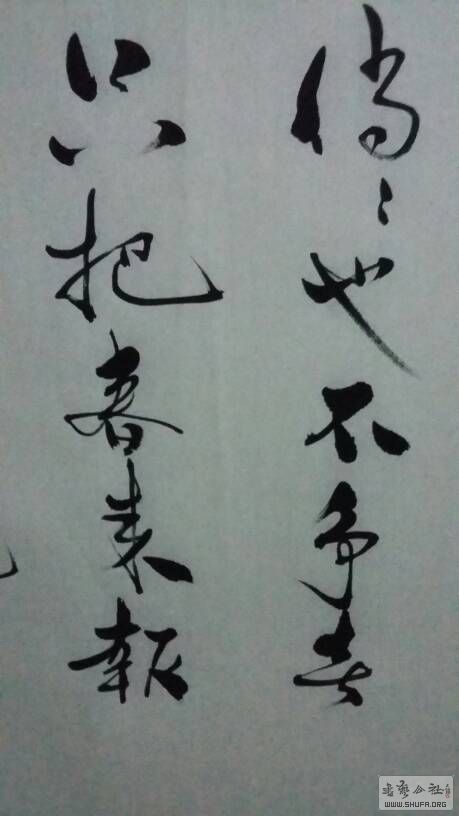 俏〻也不争春
只把春来報
書藝公社
WWW.SHUFA.ORG